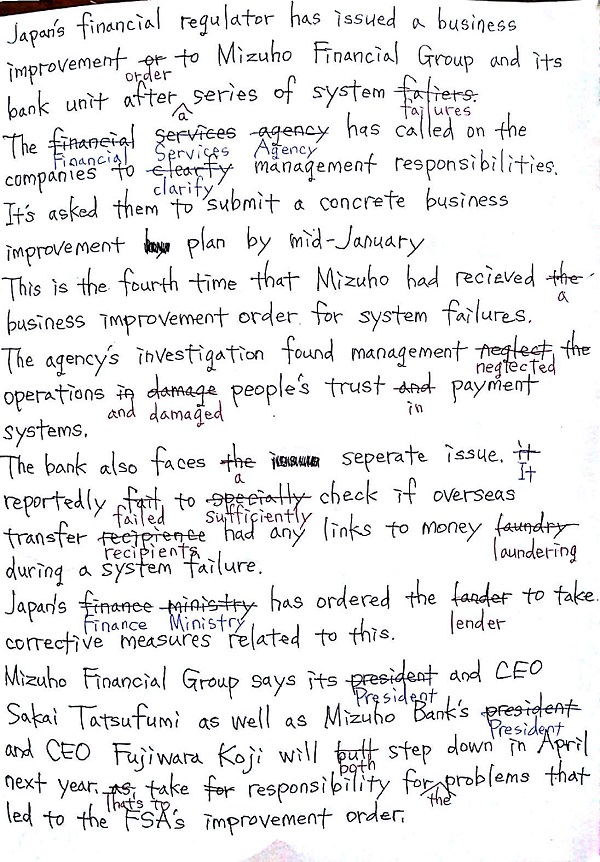 Japan's financial regulator has issued a business
improvement or to Mizuho Financial Group and its
order
bank unit after series of system faliers.
a failures
The financial services agency has called on the
Financial Services Agency
companies to clearfy management responsibilities.
clarify
It's asked them to submit a concrete business
improvement plan by mid-January
This is the fourth time that Mizuho had recieved the
a
business improvement order for system failures.
The agency's investigation found management neglect the
neglected
operations in damage people's trust and payment
and damaged in
systems.
The bank also faces the seperate issue. it
a It
reportedly fail to specially check if overseas
failed sufficiently
transfer recipience had any links to money laundry
recipients laundering
during a system failure.
Japan's finance ministry has ordered the lander to take
Finance Ministry lender
corrective measures related to this.
Mizuho Financial Group says its president and CEO
President
Sakai Tatsufumi as well as Mizuho Bank's president
President
and CEO Fujiwara Koji will butt step down in April
both
next year. as, take for responsibility for problems that
That's to the
led to the FSA's improvement order.